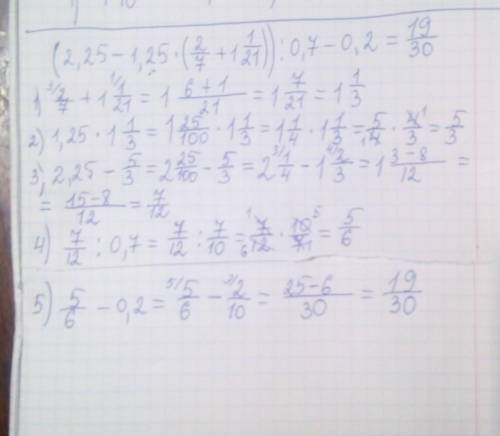 (2,25 − 1,25 · (2/7 + 1 1/21)) : 0,7 − 0,2 = 19/30
1) ³⁾2/7 + 1 ¹⁾1/21 = 1 (6+1)/21 = 1 7/21 = 1 1/3
2) 1,25 · 1 1/3 = 1 25/100 · 1 1/3 = 1 1/4 · 1 1/3 = 5/4 · 4/3 = 5/3
3) 2,25 − 5/3 = 2 25/100 − 5/3 = 2 ³⁾1/4 − 1 ⁴⁾2/3 = 1 (3−8)/12 =
= (15−8)/12 = 7/12
4) 7/12 : 0,7 = 7/12 : 7/10 = 7/12 · 10/7 = 5/6
5) 5/6 − 0,2 = ⁵⁾5/6 − ³⁾2/10 = (25−6)/30 = 19/30